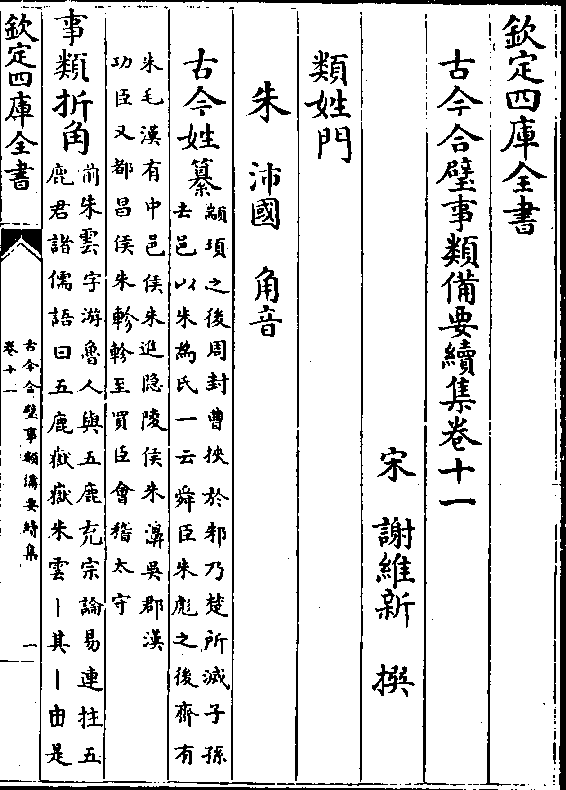 欽定四庫全書
古今合璧事類備要續集卷十一
宋 謝維新 撰
類姓門
朱 沛國 角音
古今姓纂
顓頊之後周封曹挾於邾乃楚所滅子孫
去邑以朱為氏一云舜臣朱彪之後齊有
朱毛漢有中邑侯朱進隠陵侯朱濞吳郡漢
功臣又都昌侯朱軫軫至買臣會稽太守
事類折角
前朱雲字游魯人與五鹿充宗論易連拄五
鹿君諸儒語曰五鹿嶽嶽朱雲丨其丨由是
欽定四庫全書
古今合璧事類備要續集
卷十一
一